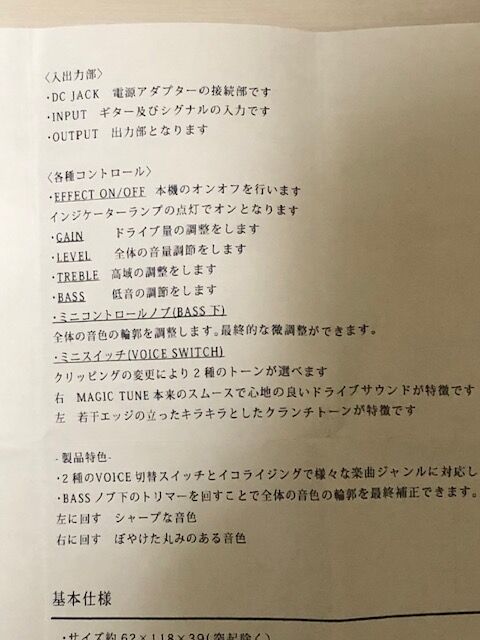 〈入出力部〉
・DC JACK 電源アダプターの接続部です
・INPUT ギター及びシグナルの入力です
・OUTPUT 出力部となります
〈各種コントロール〉
・EFFECT ON/OFF 本機のオンオフを行います
インジケーターランプの点灯でオンとなります
・GAIN ドライブ量の調整をします
・LEVEL 全体の音量調節をします
・TREBLE 高域の調整をします
・BASS 低音の調節をします
・ミニコントロールノブ(BASS 下)
全体の音色の輪郭を調整します。最終的な微調整ができます。
・ミニスイッチ(VOICE SWITCH)
クリッピングの変更により2種のトーンが選べます
右 MAGIC TUNE 本来のスムースで心地の良いドライブサウンドが特徴です
左 若干エッジの立ったキラキラとしたクランチトーンが特徴です
- 製品特色-
・2種のVOICE切替スイッチとイコライジングで様々な楽曲ジャンルに対応し
・BASSノブ下のトリマーを回すことで全体の音色の輪郭を最終補正できます。
左に回す シャープな音色
右に回す ぼやけた丸みのある音色
基本仕様
・サイズ約62×118×39(突起除く)